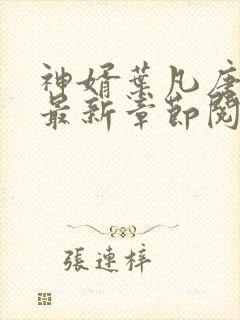 神婿葉凡唐
最新章節閱
張連梓